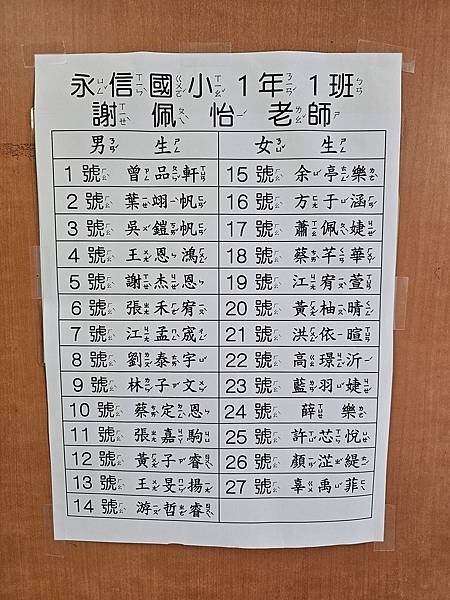 永信國小1年1班
謝佩怡老師
男生 女生
1號 曾品軒 15號 余亭樂
2號 葉翊帆 16號 方子涵
3號 吳鎧帆 17號 蕭佩婕
4號 王恩鴻 18號 蔡芊華
5號 謝杰恩 19號 江宥萱
6號 張禾宥 20號 黃柚晴
7號 江孟宬 21號 洪依暄
8號 劉泰宇 22號 高璟沂
9號 林子文 23號 藍羽婕
10號 蔡定恩 24號 薛樂
11號 張嘉駒 25號 許芯悅
12號 黃子睿 26號 顏淽緹
13號 王旻揚 27號 辜禹菲
14號 游哲睿